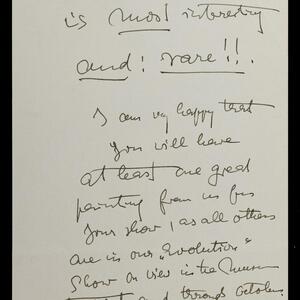 is most interesting
and: rare!!.
I am very happy that
you will have
at least one great
painting from us for
your show, as all others
are in our "Evolution"
Show on view in the Museum
and through October